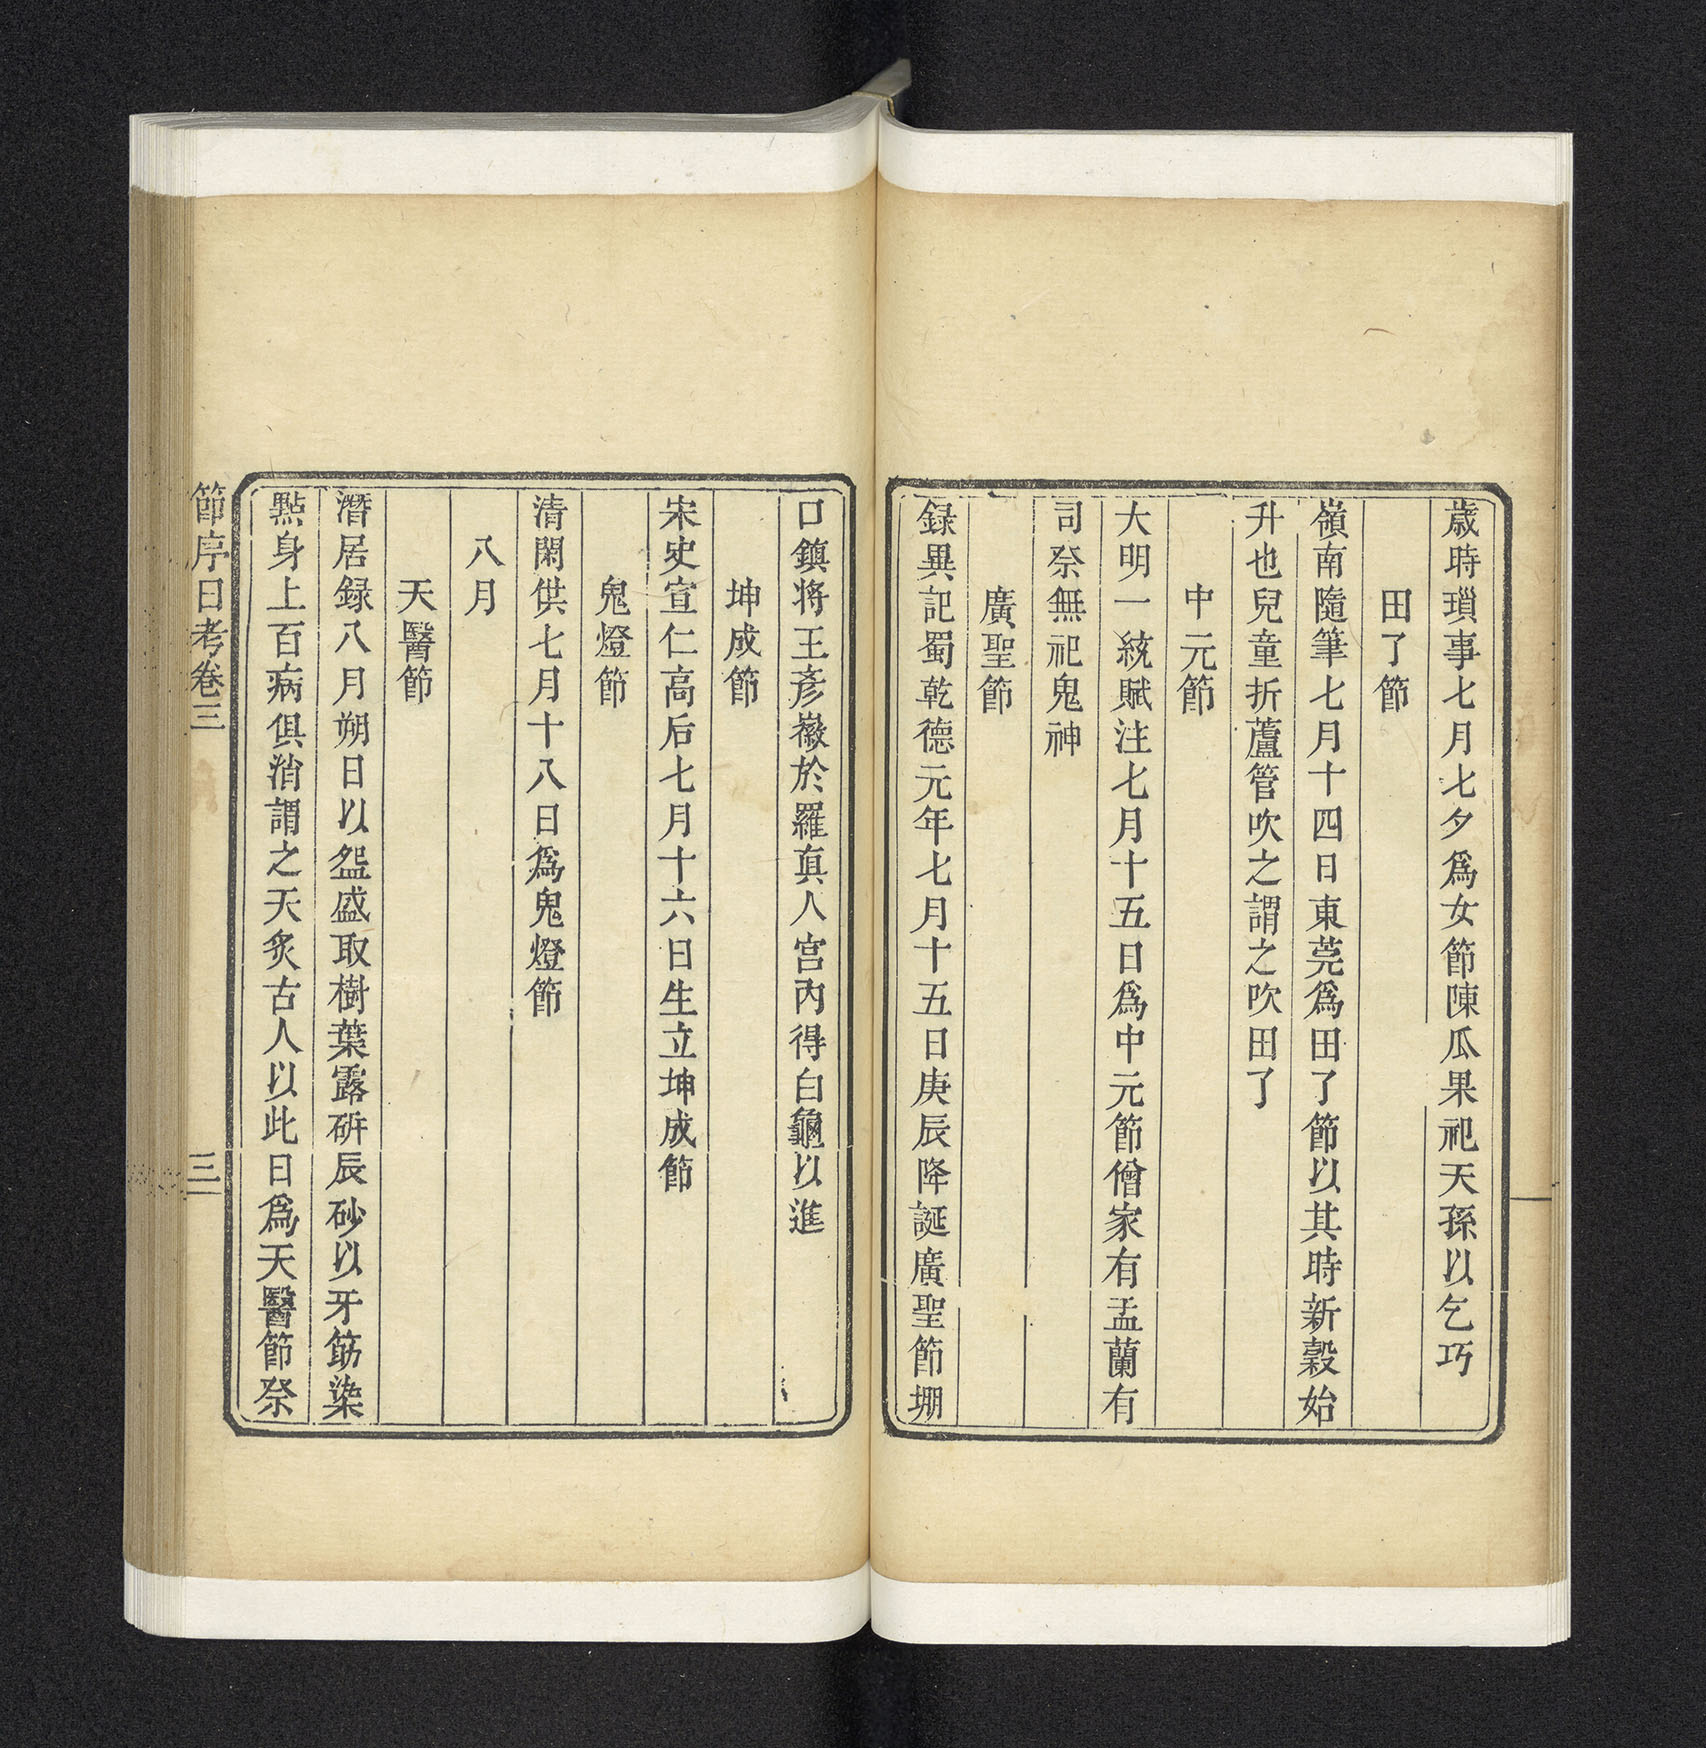 歲時瑣事七月七夕爲女節陳瓜果祀天孫以乞巧
田了節
嶺南隨筆七月十四日東莞爲田了節以其時新穀始
升也兒童折蘆管吹之謂之吹田了
中元節
大明一統賦注七月十五日爲中元節僧家有盂蘭有
司祭無祀鬼神
廣聖節
録異記蜀乾德元年七月十五日庚辰降誕廣聖節堋
口鎮將王彥徽於羅真人宫內得白龜以進
坤成節
宋史宣仁高后七月十六日生立坤成節
鬼燈節
清閑供七月十八日爲鬼燈節
八月
天醫節
潛居録八月朔日以盌盛取樹葉露研辰砂以牙筯染
點身上百病俱消謂之天炙古人以此日爲天醫節祭
節序日考卷三
三